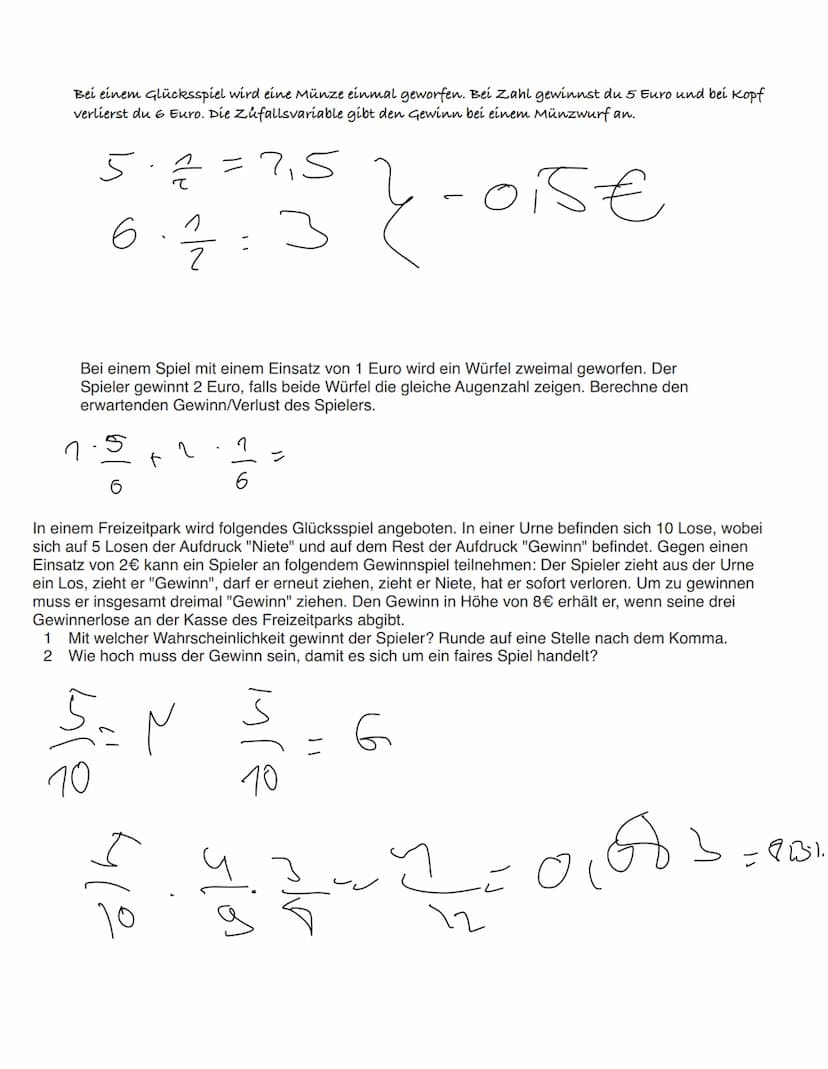 Bei einem Glücksspiel wird eine Münze einmal geworfen. Bei Zahl gewinnst du 5 Euro und bei Kopf
verlierst du 6 Euro. Die Zufallsvariable gibt den Gewinn bei einem Münzwurf an.
5 · 1/2 = 2,5
6 · 1/2 = 3
} - 0,5 €
Bei einem Spiel mit einem Einsatz von 1 Euro wird ein Würfel zweimal geworfen. Der
Spieler gewinnt 2 Euro, falls beide Würfel die gleiche Augenzahl zeigen. Berechne den
erwartenden Gewinn/Verlust des Spielers.
1 · 5/6 + 2 · 1/6 =
In einem Freizeitpark wird folgendes Glücksspiel angeboten. In einer Urne befinden sich 10 Lose, wobei
sich auf 5 Losen der Aufdruck "Niete" und auf dem Rest der Aufdruck "Gewinn" befindet. Gegen einen
Einsatz von 2€ kann ein Spieler an folgendem Gewinnspiel teilnehmen: Der Spieler zieht aus der Urne
ein Los, zieht er "Gewinn", darf er erneut ziehen, zieht er Niete, hat er sofort verloren. Um zu gewinnen
muss er insgesamt dreimal "Gewinn" ziehen. Den Gewinn in Höhe von 8€ erhält er, wenn seine drei
Gewinnerlose an der Kasse des Freizeitparks abgibt.
1 Mit welcher Wahrscheinlichkeit gewinnt der Spieler? Runde auf eine Stelle nach dem Komma.
2 Wie hoch muss der Gewinn sein, damit es sich um ein faires Spiel handelt?
5/10 = N 5/10 = G
5/10 · 4/9 · 3/8 = 1/12 = 0,083